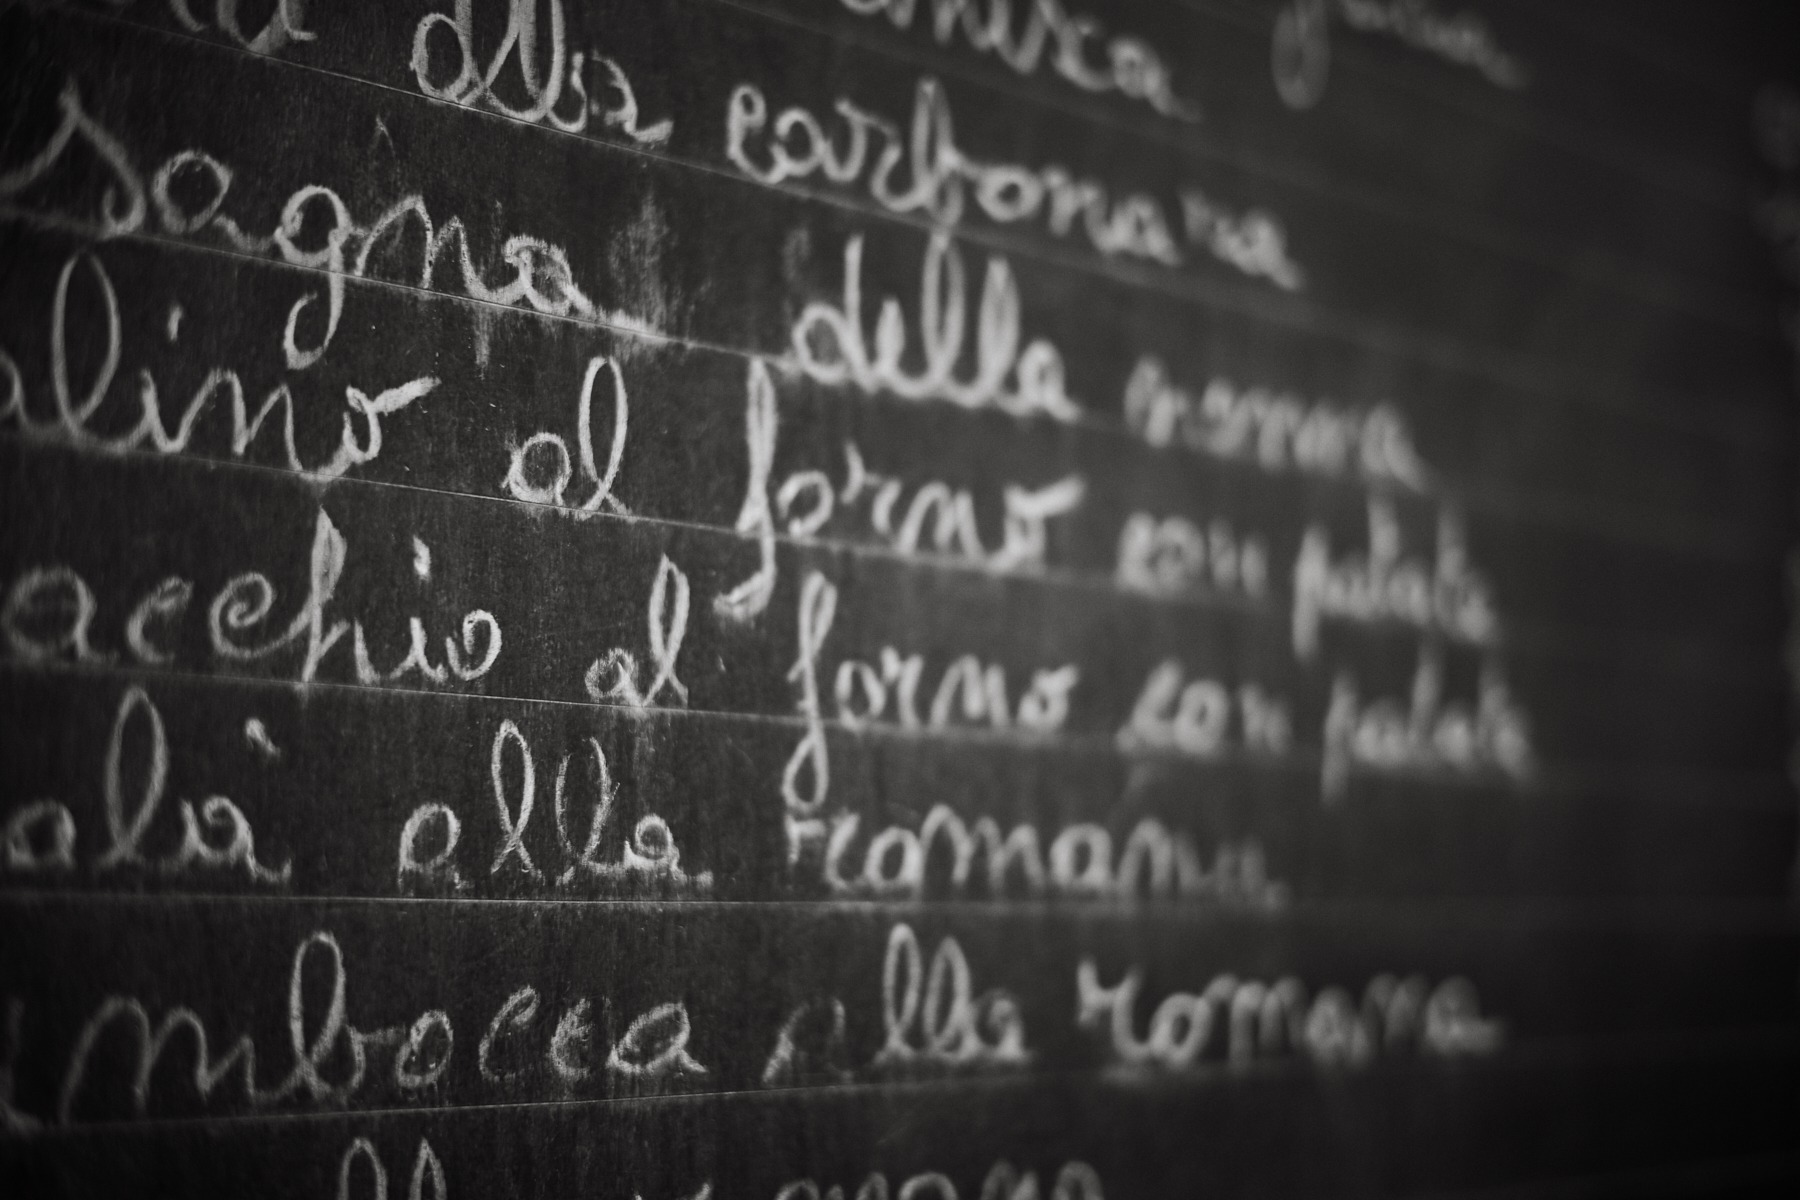 alla carbonara
sagna della nonna
alino al forno con patate
acchio al forno con patate
alla romana
imbocca alla romana